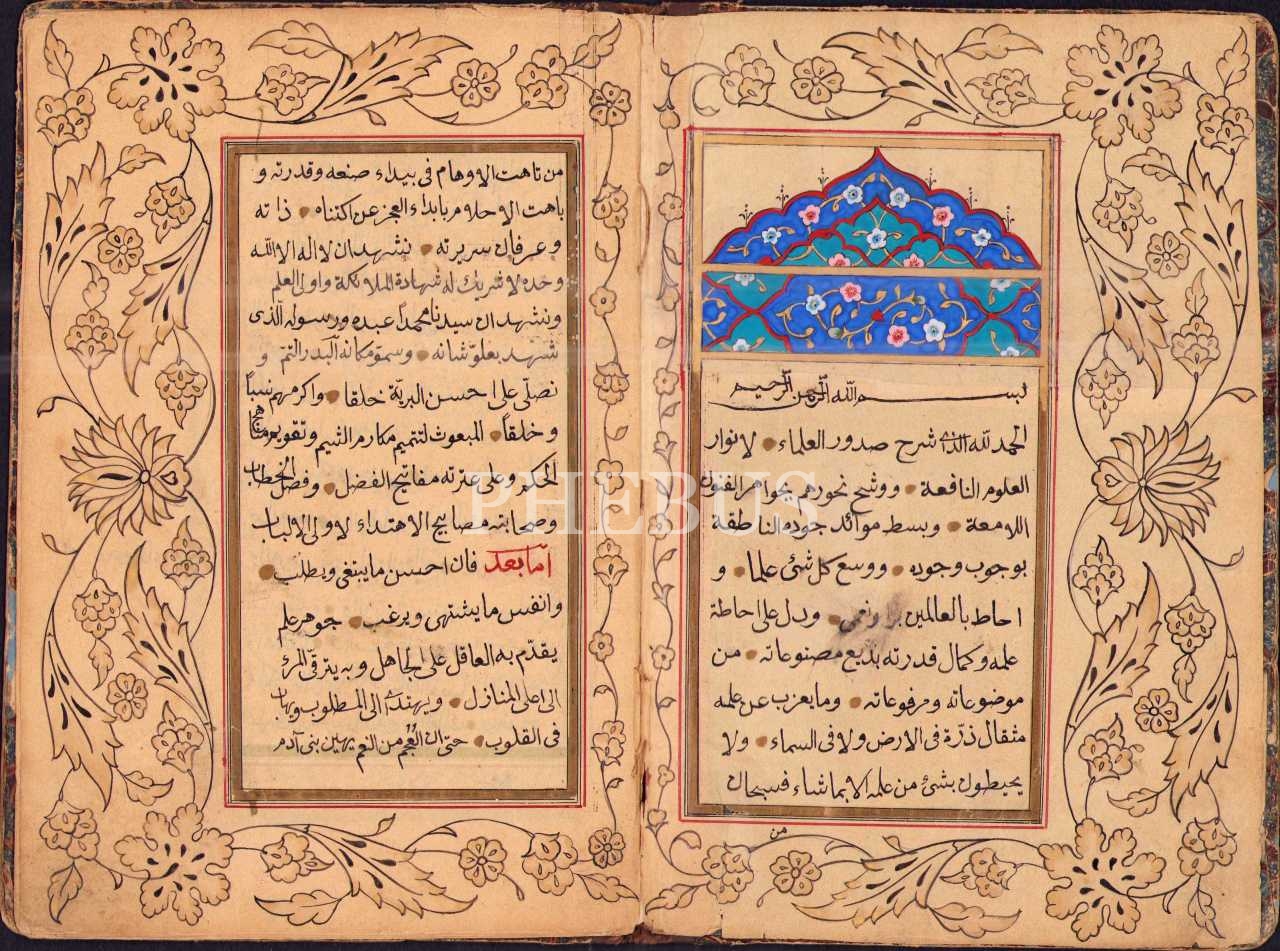 بسم الله الرحمن الرحيم
الحمد لله الذى شرح صدور العلماء لانوار
العلوم النافعة ووشح نحورهم بجواهر الفنون
اللامعة وبسط موائد جوده الناطقة
بوجوب وجوده ووسع كل شئ علما و
احاط بالعالمين ودل على احاطة
علمه وكمال قدرته بديع مصنوعاته من
موضوعاته ومرفوعاته وما يعزب عن علمه
مثقال ذرّة فى الارض ولا فى السماء ولا
يحيطون بشئ من علمه الا بماشاء فسبحان
من
من تاهت الاوهام فى بيداء صنعه وقدرته و
باهت الاحلام بابداء العجز عن اكتناه ذاته
وعرفان سريرته نشهد ان لا اله الا الله
وحده لا شريك له شهادة الملائكة واولى العلم
ونشهد ان سيدنا محمداً عبده ورسوله الذى
شهد بعلوّ شانه وسموّ مكانه البدر التم و
نصلّى على احسن البريّة خلقا واكرمهم نسباً
وخلقاً المبعوث لتتميم مكارم الشيم وتقويم مناهج
الحكم وعلى عترته مفاتيح الفضل وفصل الخطاب
وصحابته مصابيح الاهتداء لاولى الالباب
امّا بعد فان احسن ما يبتغى ويطلب
وانفس ما يشتهى ويرغب جوهر علم
يقدّم به العاقل على الجاهل وبه يترقّى المرئ
الى اعلى المنازل ويهتدى الى المطلوب ويهاب
فى القلوب حتى ان العُجُم من النعم يهين بنى آدم
PHEBUS